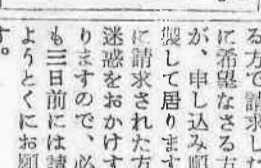 る方で請求した
に希望なさる方
が、申し込み順
製して居ります
に請求された方
迷惑をおかけす
りますので、必
も三日前には請
ようとくにお願
す。